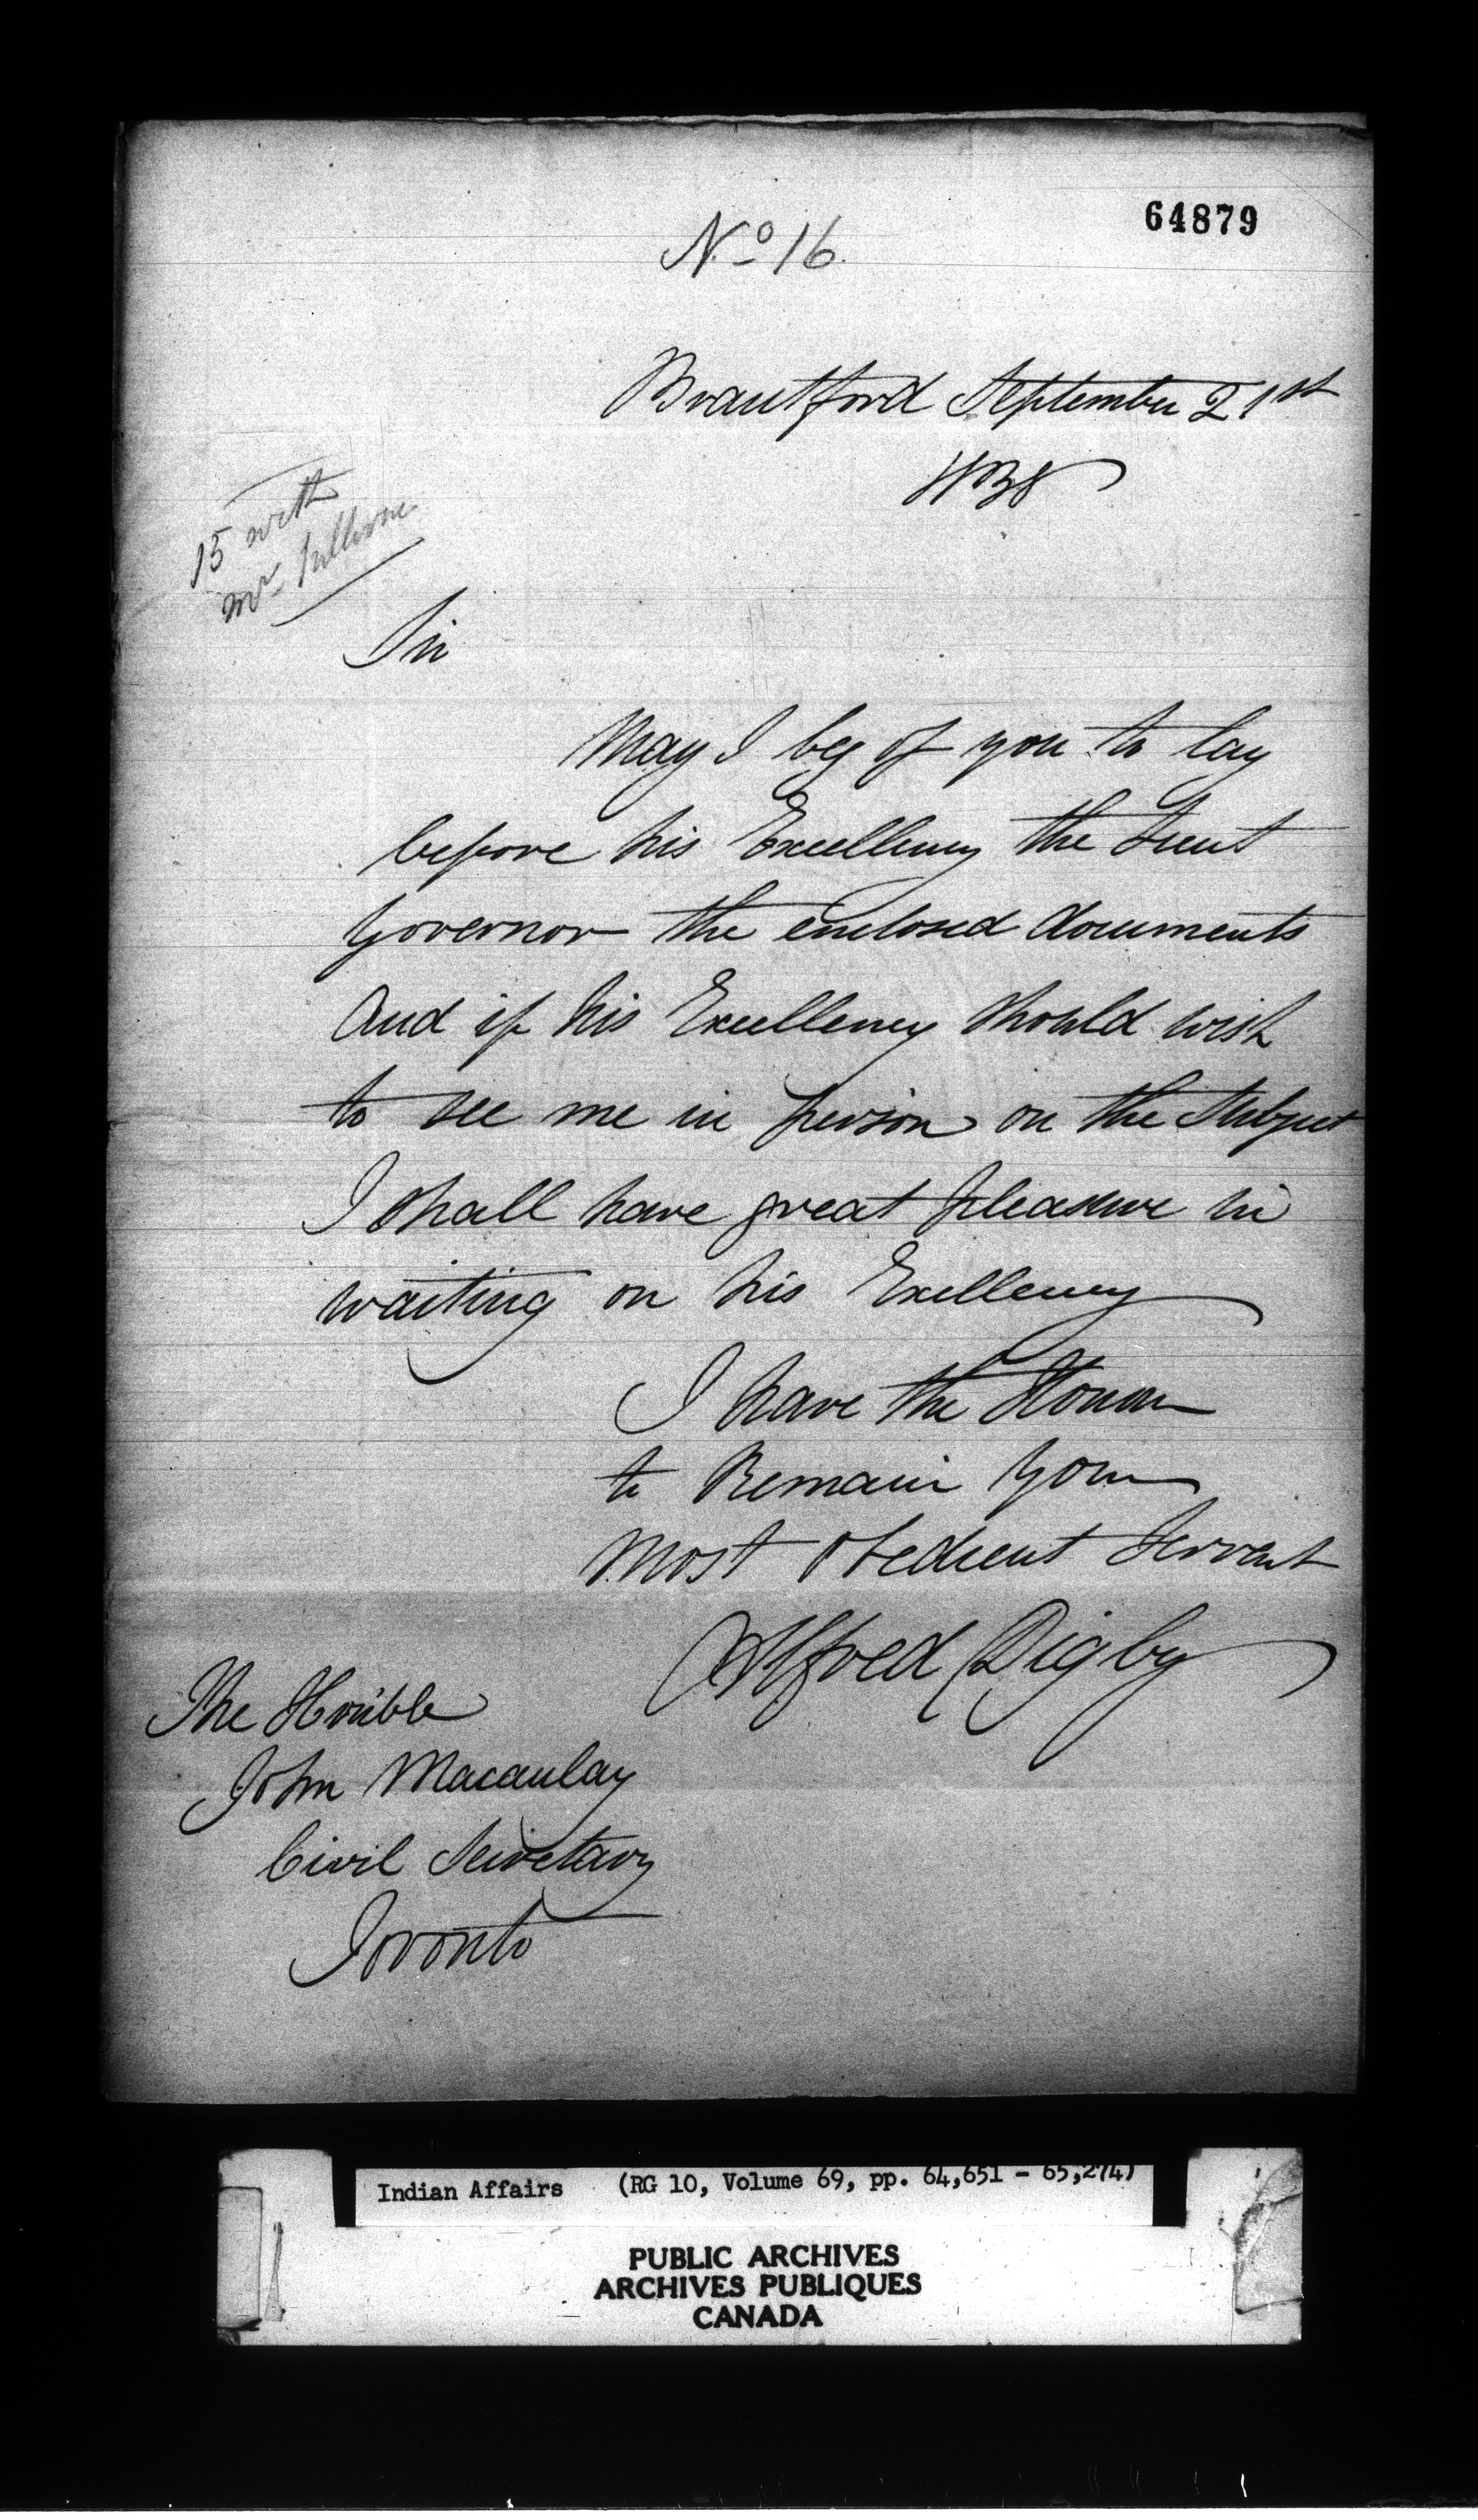 64879
No 16.
Brantford September 21st
1838
15 with
Mr
Sir
May I beg of you to lay
before his Excellency the Lieut
Governor the enclosed documents
And if his Excellency should wish
to see me in person on the Subject
I shall have great pleasure in
waiting on his Excellency
I have the Honour
to Remain Your
Most Obedient Servant
Alfred Digby
The Honble
John Macaulay
Civil Secretary
Toronto
Indian Affairs (RG 10, Volume 69, pp. 64,651 - 65,274)
PUBLIC ARCHIVES
ARCHIVES PUBLIQUES
CANADA